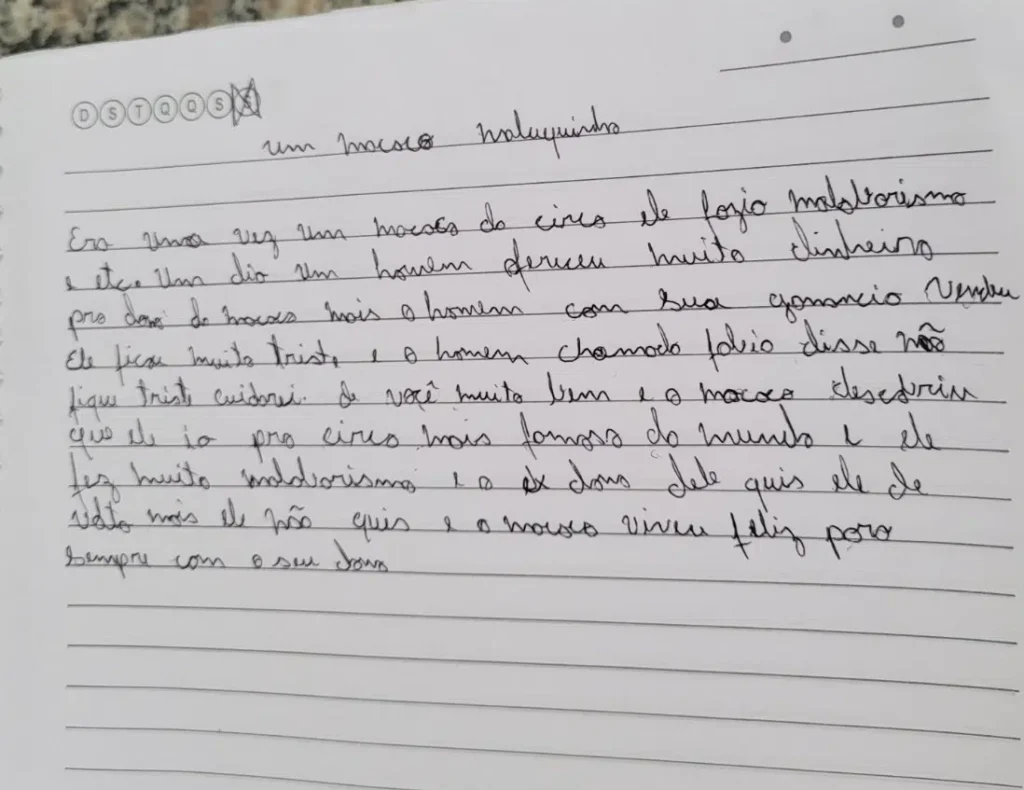 D S T Q Q S S
um macaco maluquinho
Era uma vez um macaco do circo ele fazia malabarismo
e etc. Um dia um homem ofereceu muito dinheiro
pro dono do macaco mais o homem com sua ganancia vendeu
Ele ficou muito triste e o homem chamado fabio disse não
fique triste cuidarei de você muito bem e o macaco descobriu
que ele ia pro circo mais famoso do mundo e ele
fez muito malabarismo e o ex dono dele quis ele de
volta mais ele não quis e o macaco viveu feliz para
sempre com o seu dono